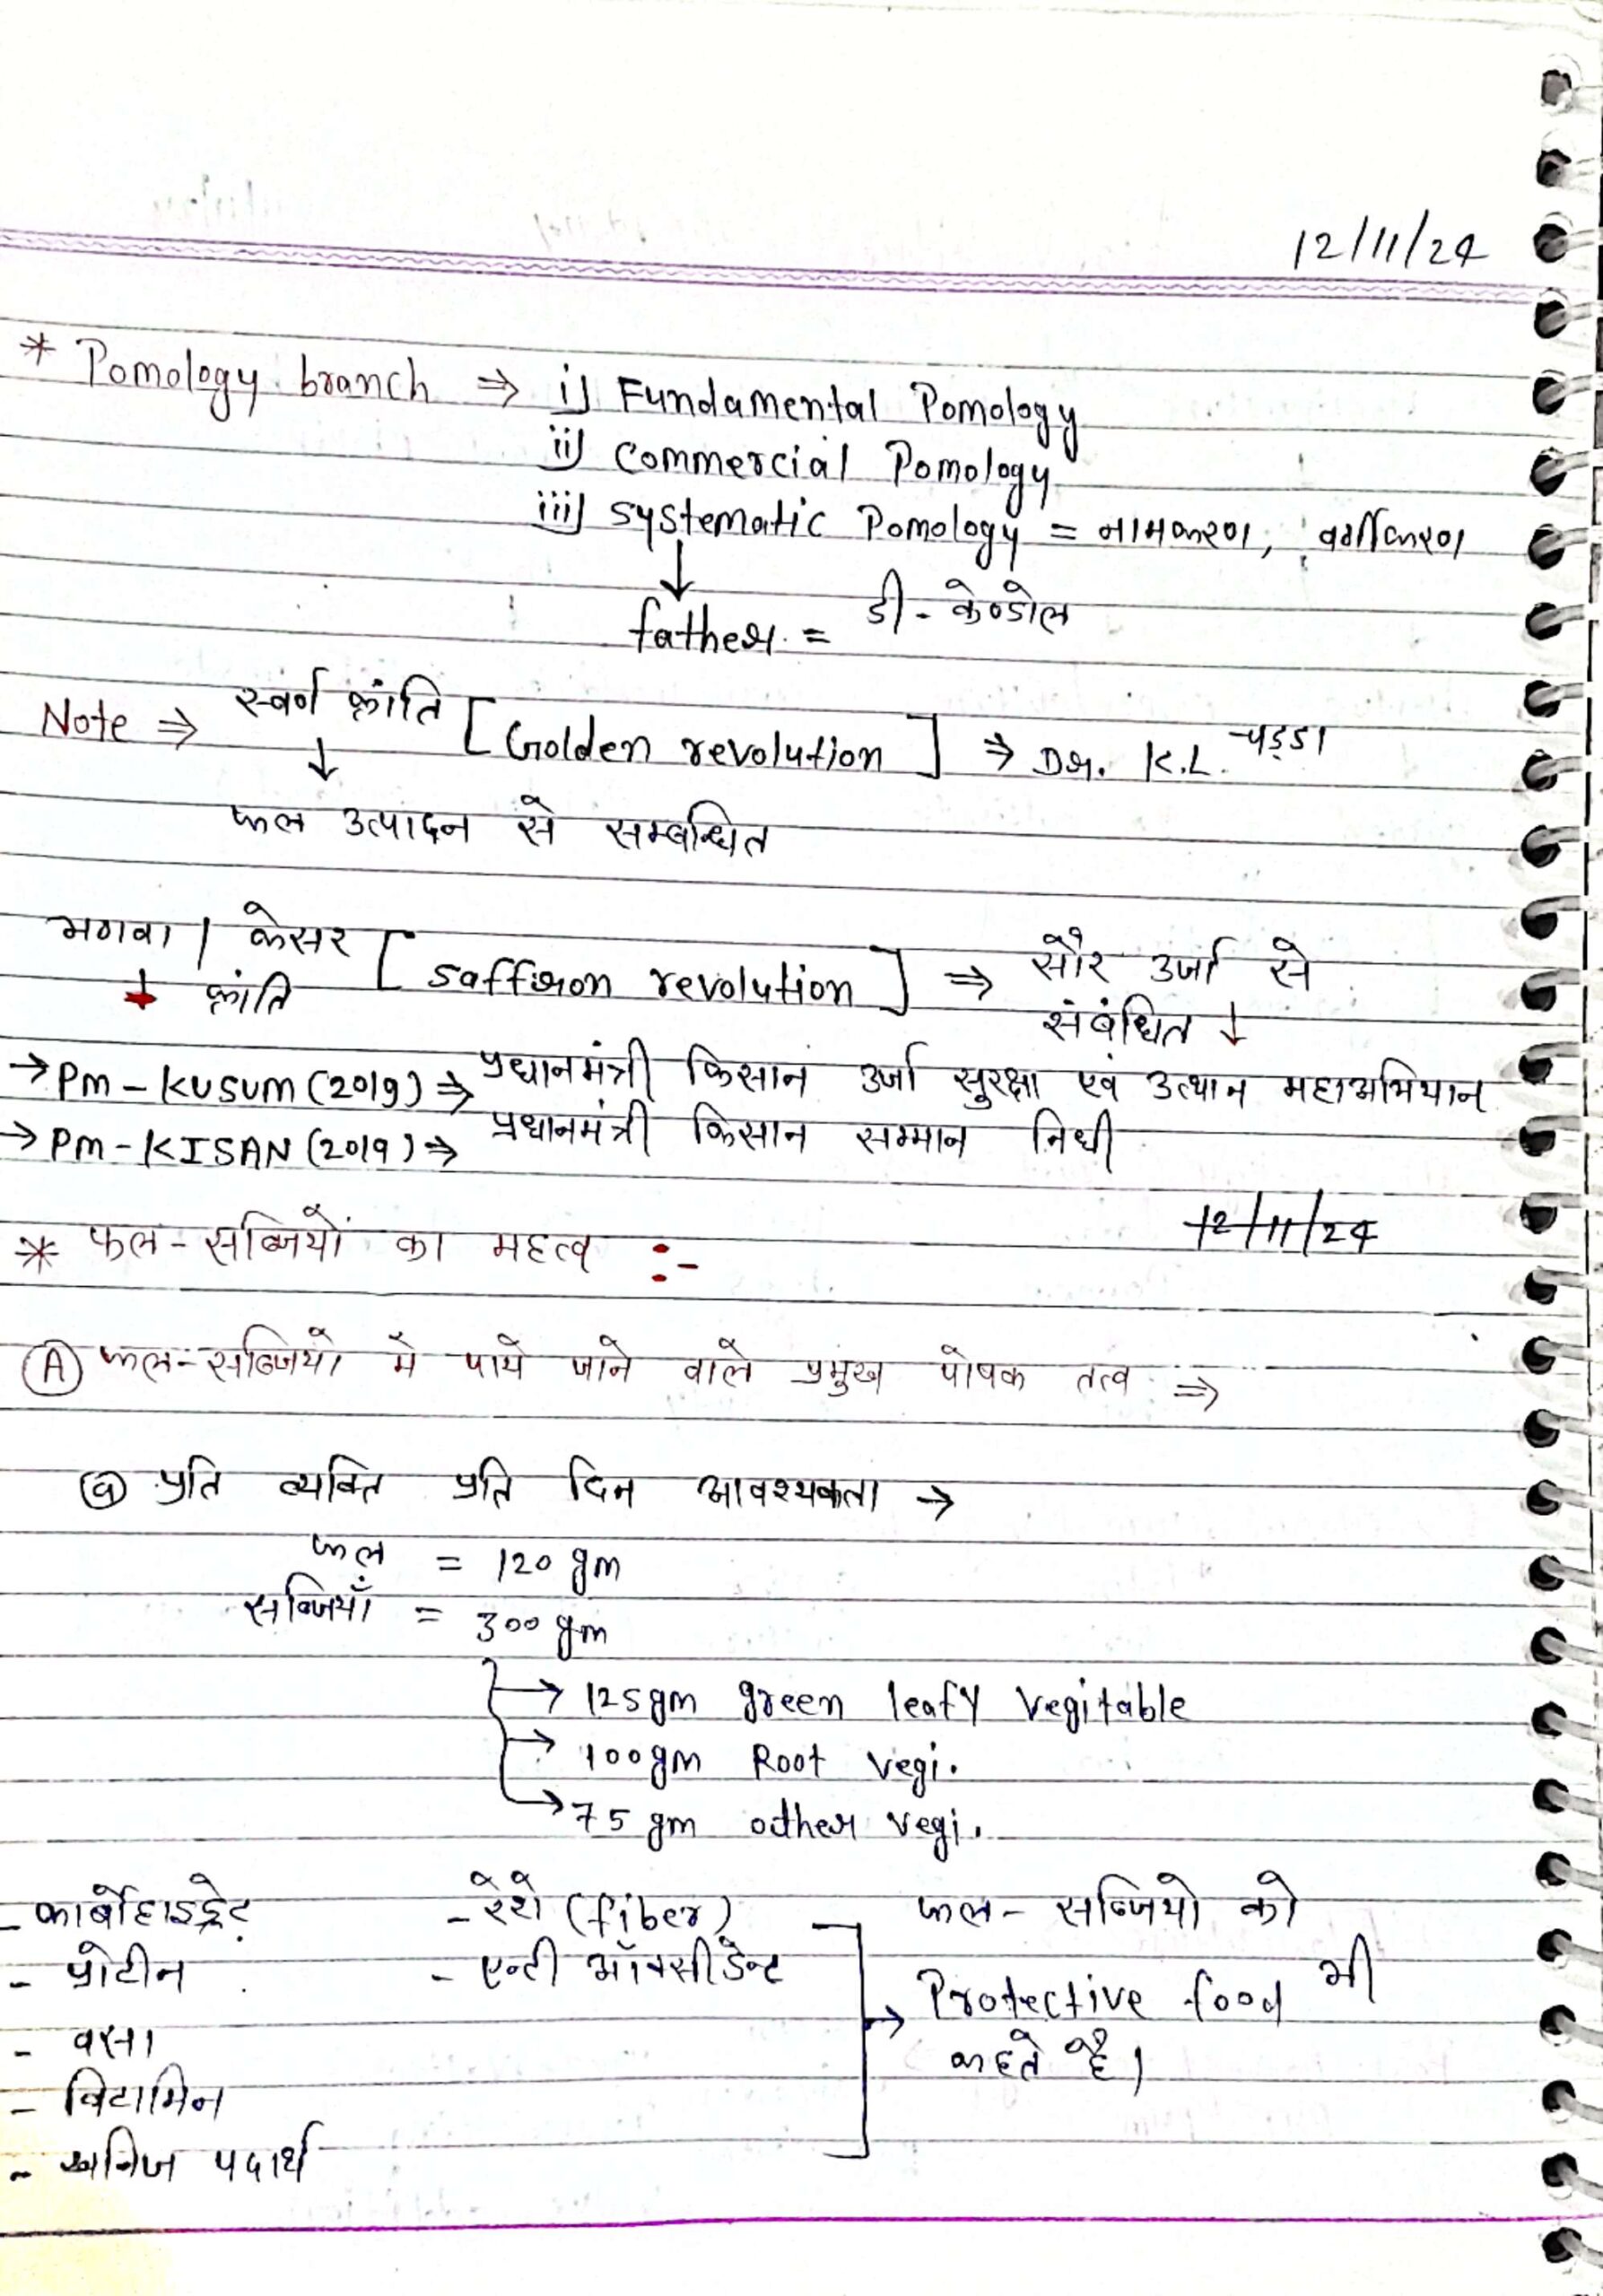 12/11/24
* Pomology branch ⇒ i) Fundamental Pomology
ii) Commercial Pomology
iii) systematic Pomology = नामकरण, वर्गीकरण
↓
father = डी-केण्डोल
Note ⇒ स्वर्ण क्रांति [Golden revolution] ⇒ Dr. K.L. चड्डा
↓
फल उत्पादन से सम्बन्धित
भगवा / केसर [saffron revolution] ⇒ सौर उर्जा से
↓ क्रांति संबंधित ↓
→ Pm-KUSUM (2019) ⇒ प्रधानमंत्री किसान उर्जा सुरक्षा एवं उत्थान महाअभियान
→ Pm-KISAN (2019) ⇒ प्रधानमंत्री किसान सम्मान निधी
12/11/24
* फल-सब्जियों का महत्व :-
(A) फल-सब्जियो मे पाये जाने वाले प्रमुख पोषक तत्व ⇒
(a) प्रति व्यक्ति प्रति दिन आवश्यकता →
फल = 120 gm
सब्जियाँ = 300 gm
→ 125gm green leafy vegitable
→ 100gm Root vegi.
→ 75 gm odther vegi.
- कार्बोहाइड्रेट - रेशे (fiber) फल-सब्जियो को
- प्रोटीन - एन्टी ऑक्सीडेन्ट → Protective food भी
- वसा कहते है।
- विटामिन
- खनिज पदार्थ